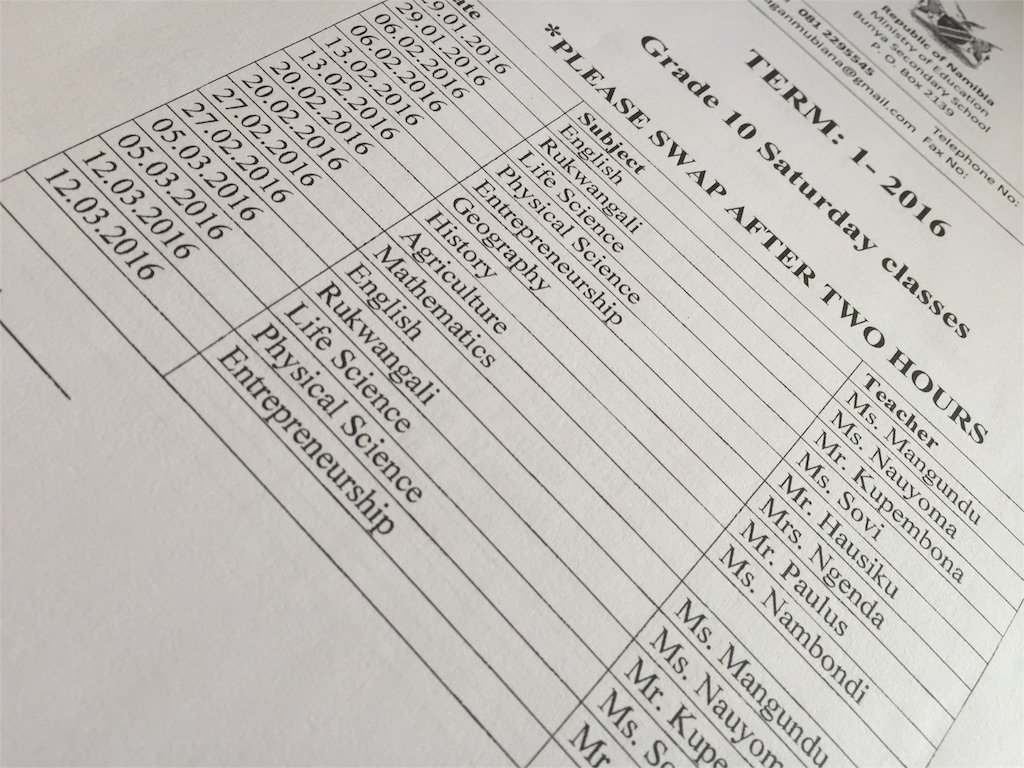 Republic of Namibia
Ministry of Education
Bunya Secondary School
P. O. Box 2139
Telephone No: 081 2295545
Fax No:
TERM: 1- 2016
Grade 10 Saturday classes
*PLEASE SWAP AFTER TWO HOURS
Subject Teacher
9.01.2016 English Ms. Mangundu
29.01.2016 Rukwangali Ms. Nauyoma
06.02.2016 Life Science Mr. Kupembona
06.02.2016 Physical Science Ms. Sovi
13.02.2016 Entrepreneurship Mr. Hausiku
13.02.2016 Geography Mrs. Ngenda
20.02.2016 History Mr. Paulus
20.02.2016 Agriculture Ms. Nambondi
27.02.2016 Mathematics
27.02.2016 English Ms. Mangundu
05.03.2016 Rukwangali Ms. Nauyom
05.03.2016 Life Science Mr. Kupe
12.03.2016 Physical Science Ms. So
12.03.2016 Entrepreneurship Mr